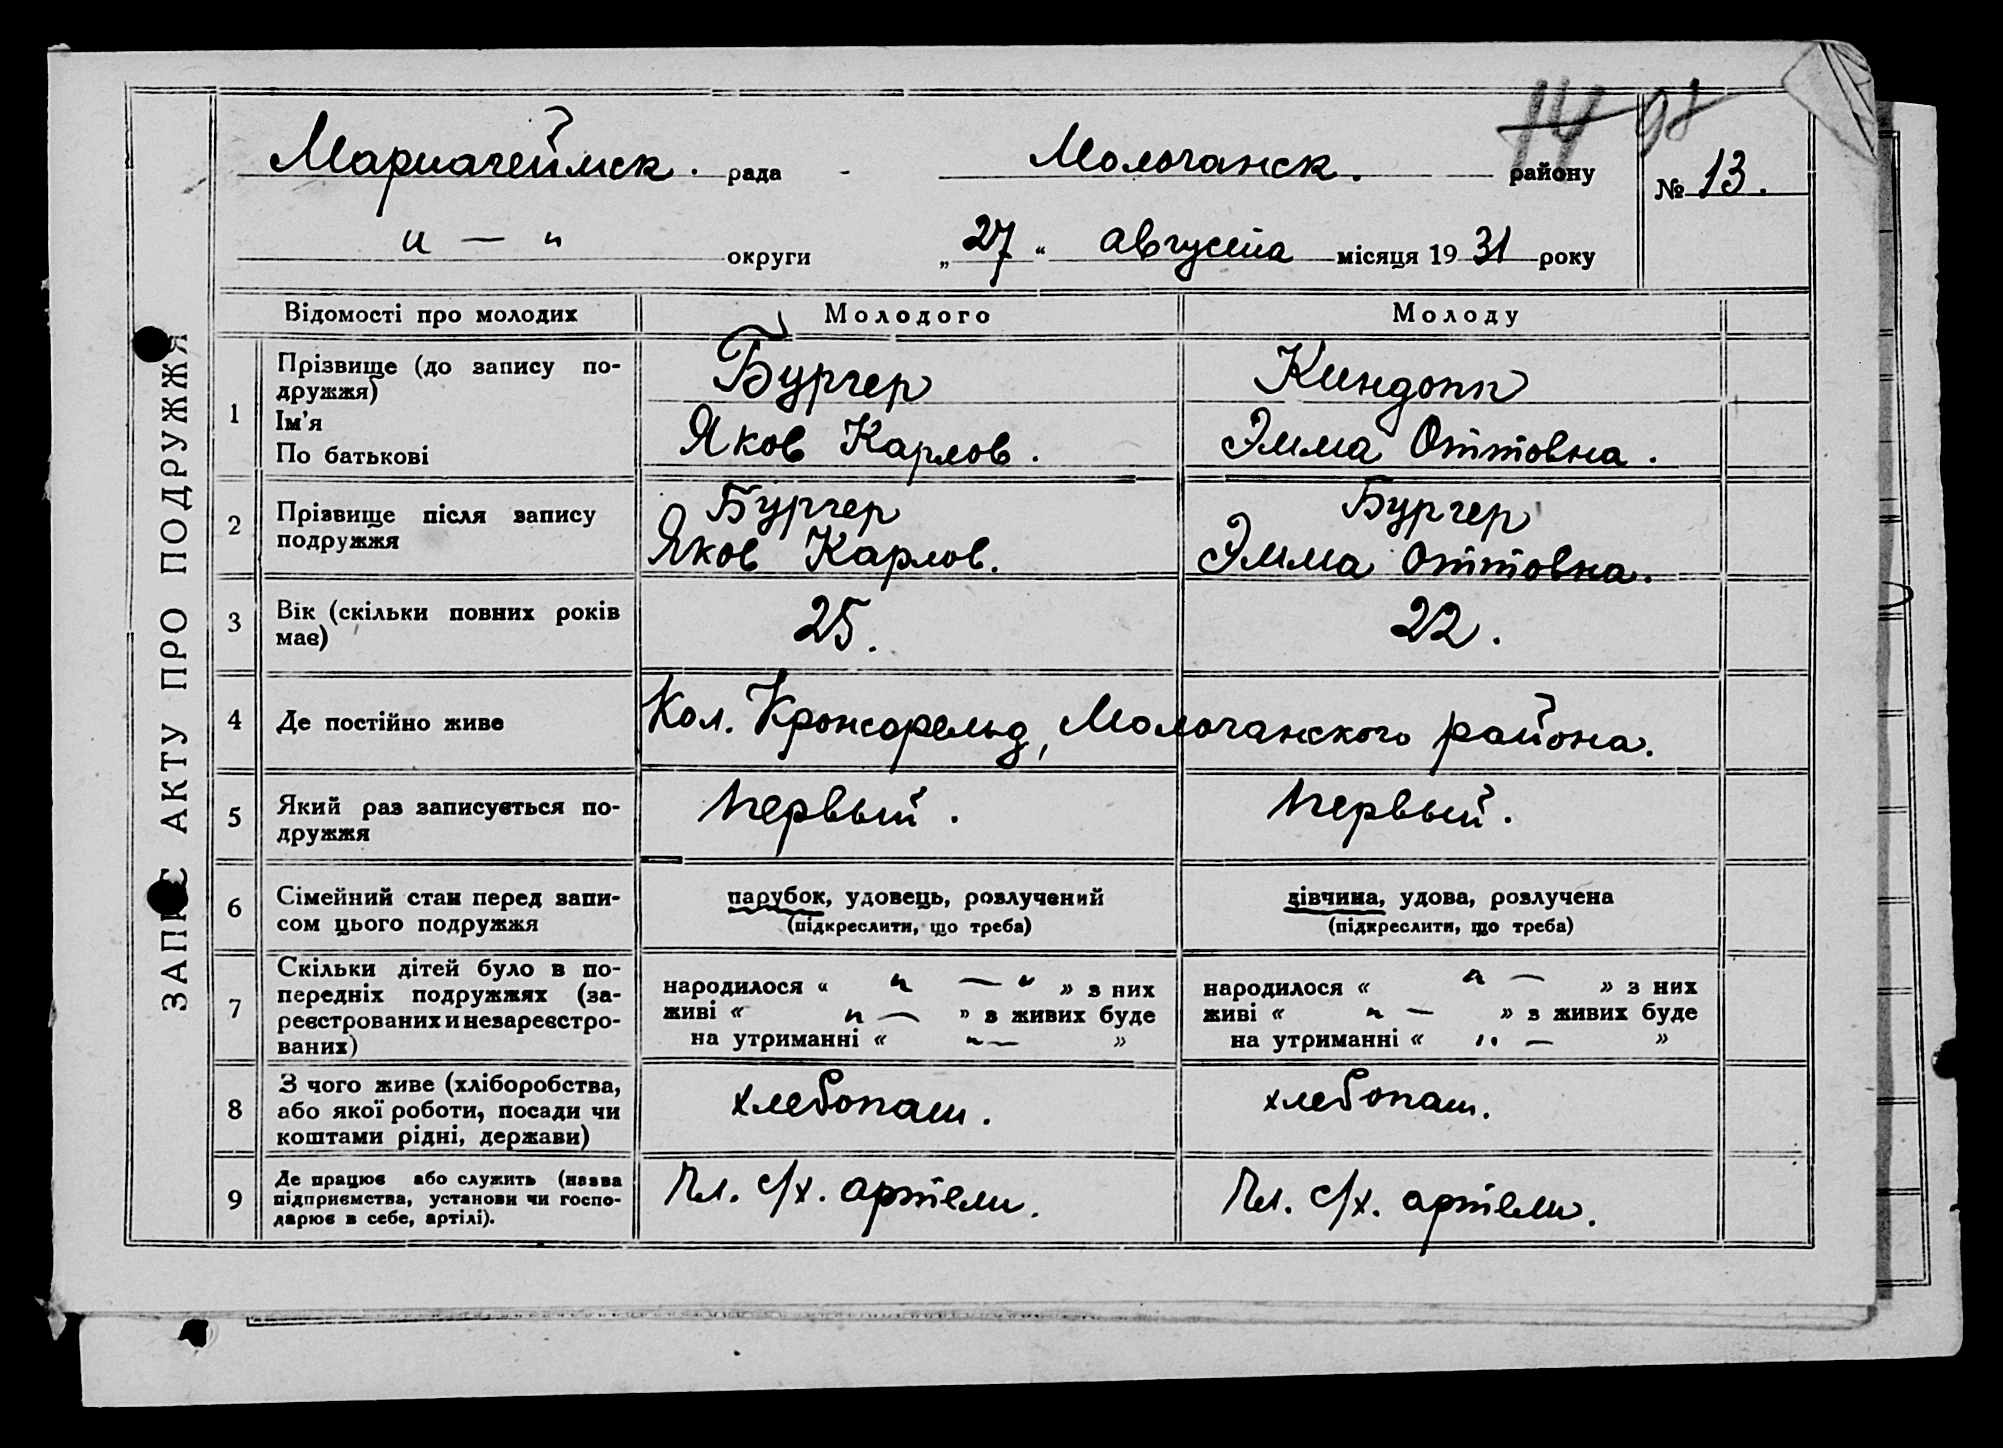 ЗАПИС АКТУ ПРО ПОДРУЖЖЯ
14 98
Мариагеймск. рада - Молочанск. району
№ 13.
" — " округи „27“ августа місяця 1931 року
Відомості про молодих Молодого Молоду
1 Прізвище (до запису по-
дружжя)
Ім'я
По батькові
Бургер
Яков Карлов.
Киндопп
Эмма Оттовна.
2 Прізвище після запису
подружжя
Бургер
Яков Карлов.
Бургер
Эмма Оттовна.
3 Вік (скільки повних років
має)
25.
22.
4 Де постійно живе
Кол. Кронсфельд, Молочанского района.
5 Який раз записується по-
дружжя
первый.
первый.
6 Сімейний стан перед запи-
сом цього подружжя
парубок, удовець, розлучений
(підкреслити, що треба)
дівчина, удова, розлучена
(підкреслити, що треба)
7 Скільки дітей було в по-
передніх подружжях (за-
реєстрованих и незареєстро-
ваних)
народилося « " — " » з них
живі « " — » з живих буде
на утриманні « " — »
народилося « " — » з них
живі « " — » з живих буде
на утриманні « " — »
8 З чого живе (хліборобства,
або якої роботи, посади чи
коштами рідні, держави)
хлебопаш.
хлебопаш.
9 Де працює або служить (назва
підприємства, установи чи госпо-
дарює в себе, артілі).
Чл. с/х. артели.
Чл. с/х. артели.